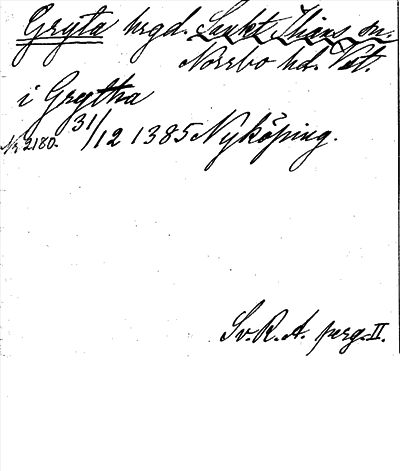 Gryta hrgd. Sankt Ihans sn.
Norrbo hd. Vet.
i Grytha
Nr 2180. 31/12 1385 Nyköping.
Sv. R. A. perg. II.